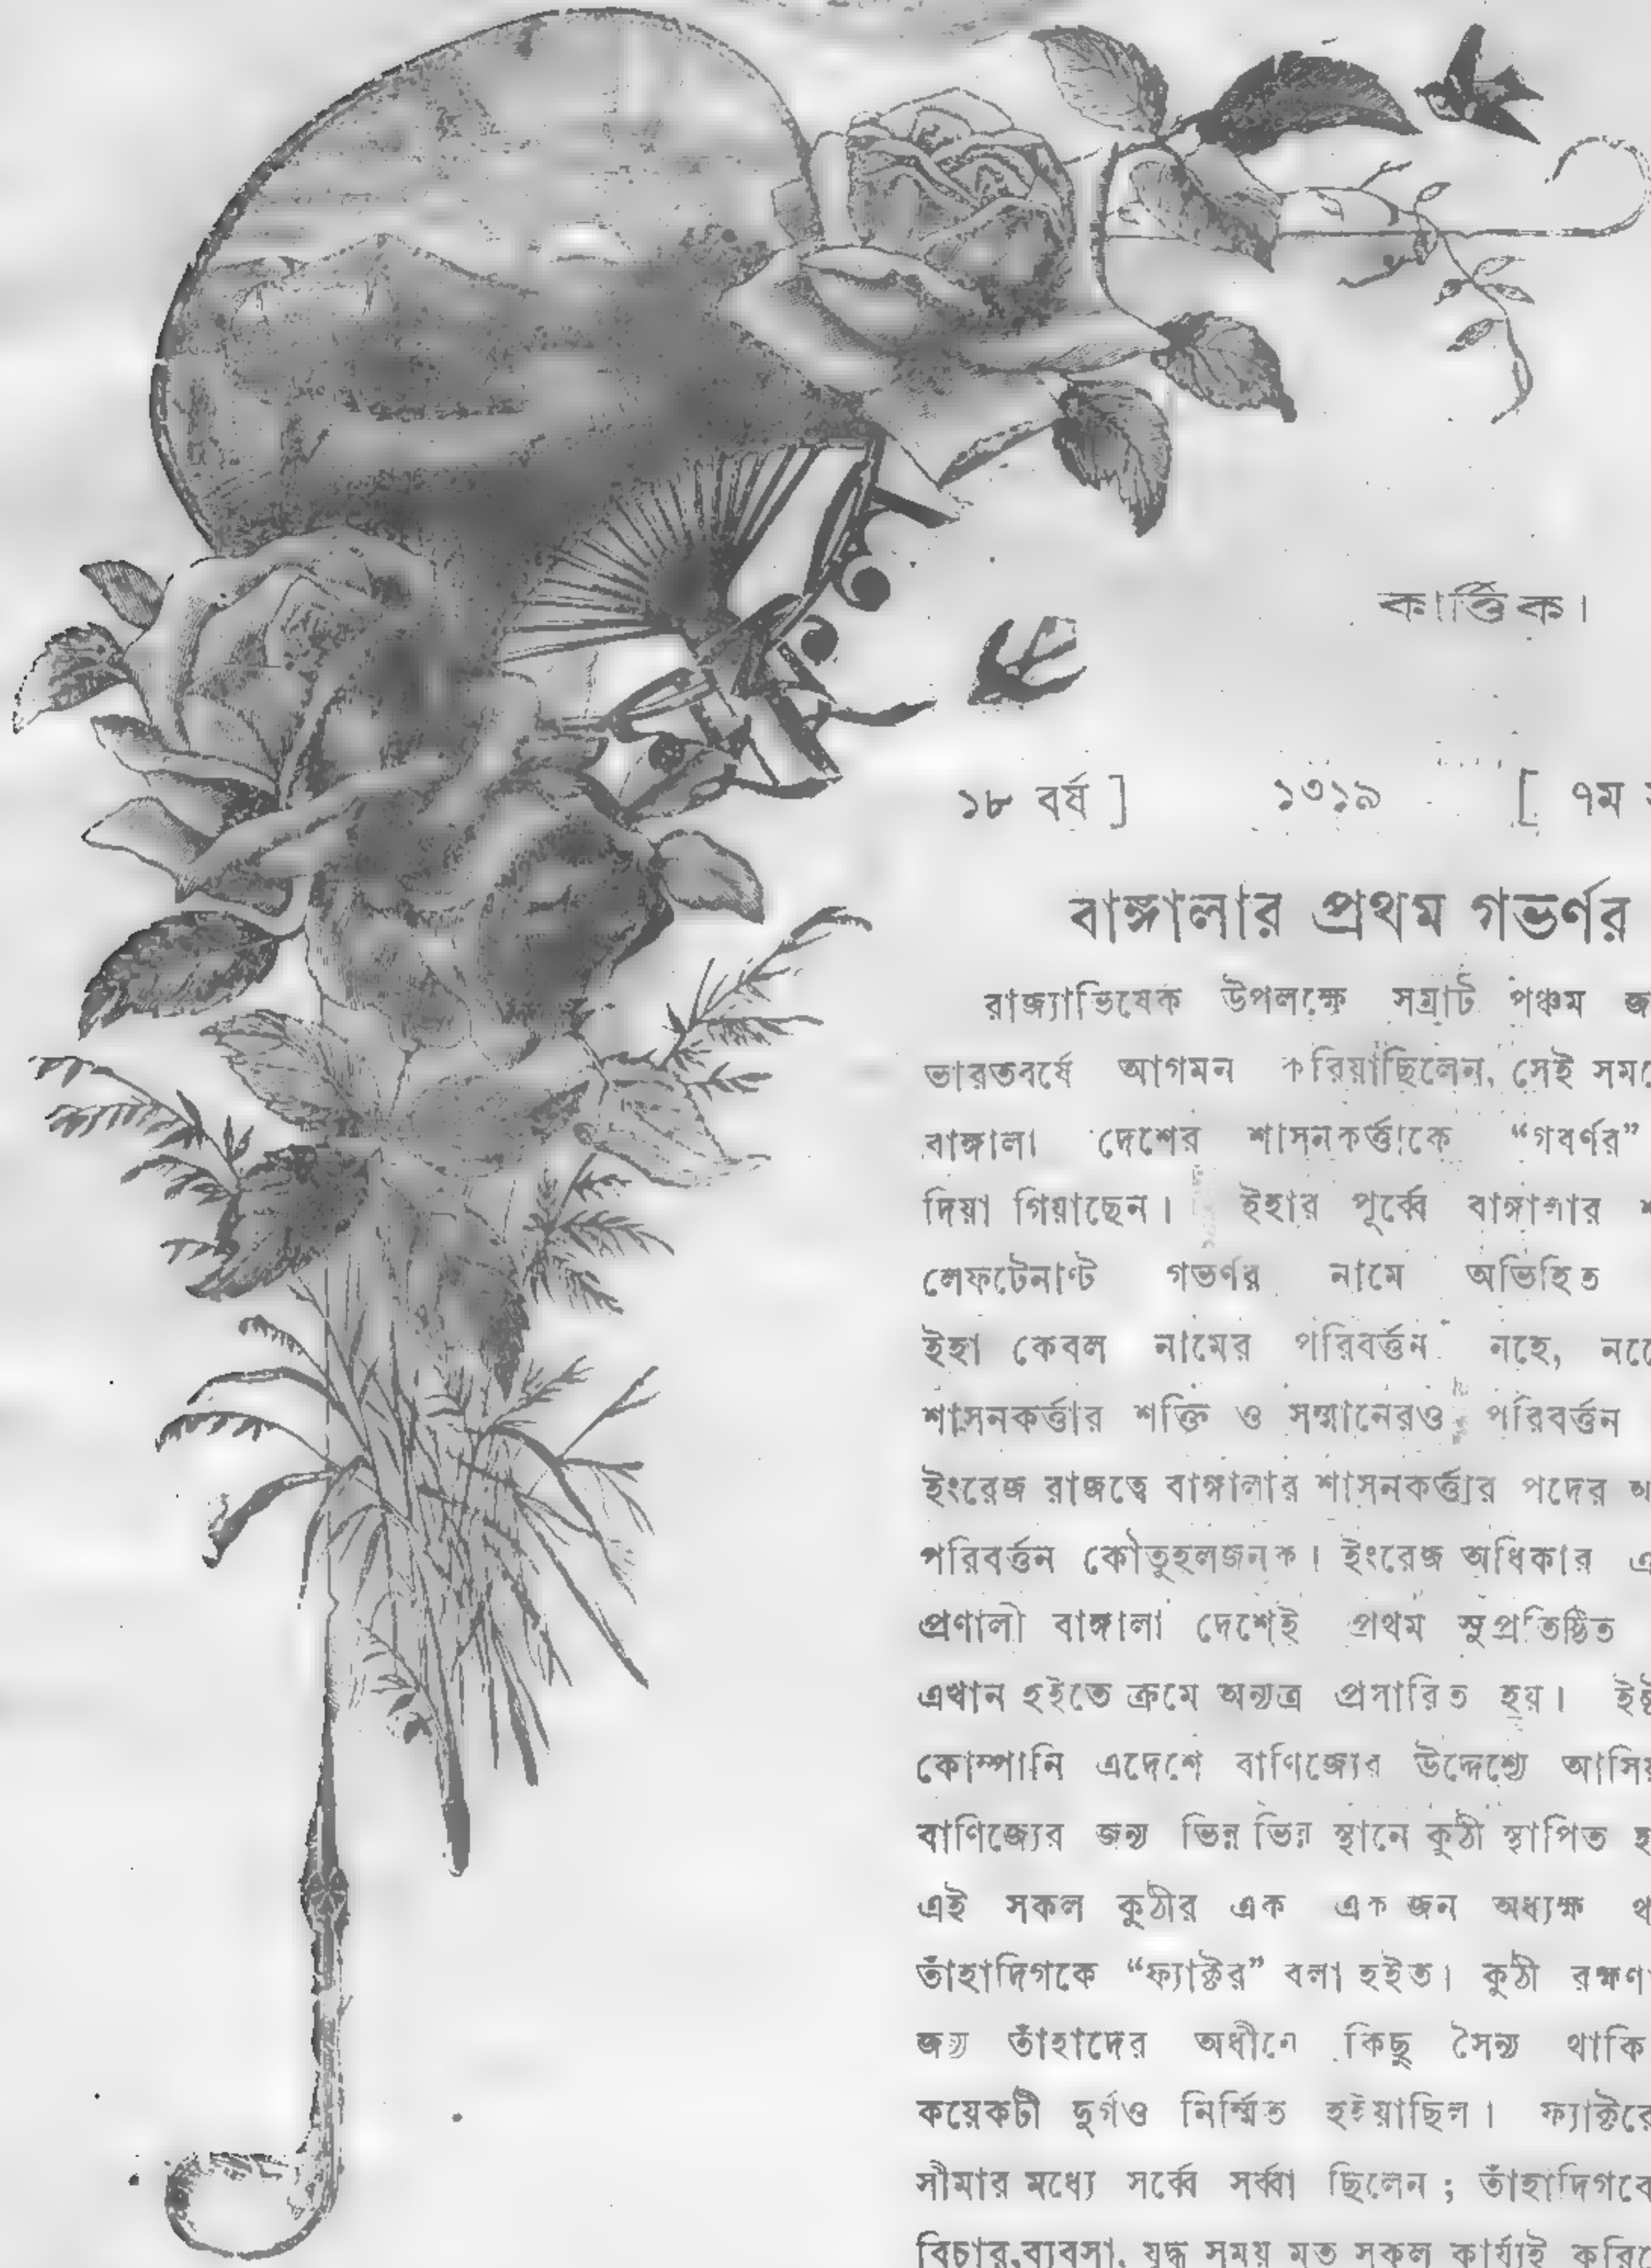 কার্ত্তিক।
১৮ বর্ষ ] ১৩১৯ [ ৭ম
বাঙ্গালার প্রথম গভর্ণর
রাজ্যাভিষেক উপলক্ষে সম্রাট পঞ্চম
ভারতবর্ষে আগমন করিয়াছিলেন, সেই
বাঙ্গালা দেশের শাসনকর্ত্তাকে “গবর্ণর”
দিয়া গিয়াছেন। ইহার পূর্ব্বে বাঙ্গালার
লেফটেনাণ্ট গভর্ণর নামে অভিহিত
ইহা কেবল নামের পরিবর্ত্তন নহে,
শাসনকর্ত্তার শক্তি ও সম্মানেরও পরিবর্ত্তন
ইংরেজ রাজত্বে বাঙ্গালার শাসনকর্ত্তার পদের
পরিবর্ত্তন কৌতুহলজনক। ইংরেজ অধিকার
প্রণালী বাঙ্গালা দেশেই প্রথম সুপ্রতিষ্ঠিত
এখান হইতে ক্রমে অন্যত্র প্রসারিত হয়।
কোম্পানি এদেশে বাণিজ্যের উদ্দেশ্যে
বাণিজ্যের জন্য ভিন্ন ভিন্ন স্থানে কুঠী স্থাপিত
এই সকল কুঠীর এক এক জন অধ্যক্ষ
তাঁহাদিগকে “ফ্যাক্টর” বলা হইত। কুঠী
জন্য তাঁহাদের অধীনে কিছু সৈন্য
কয়েকটী দুর্গও নির্ম্মিত হইয়াছিল।
সীমার মধ্যে সর্ব্বে সর্ব্বা ছিলেন ;
বিচার,ব্যবসা, যুদ্ধ সময় মত সকল কার্য্যই